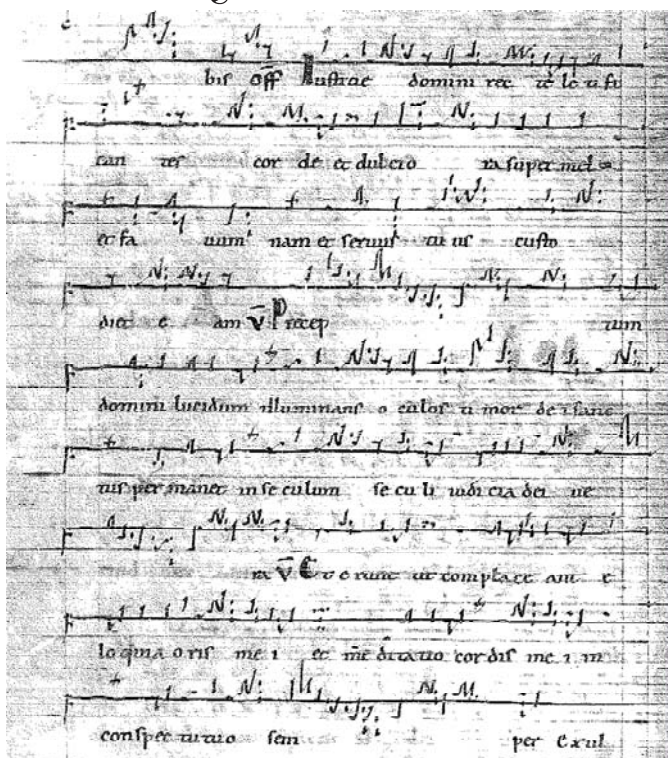 bis off Iustitiae domini rec te le ti fi
can tes cor de et dulcio ra super mel
et fa uum nam et seruus tu us custo
diet e am V Precep tum
domini lucidum illuminans o culos ti mor dei sanc
tus per manet in se culum se cu li iudi cia dei ue
ra V Et e runt ut complace ant e
loquia oris me i et meditatio cordis me i in
conspec tu tuo sem per Exul